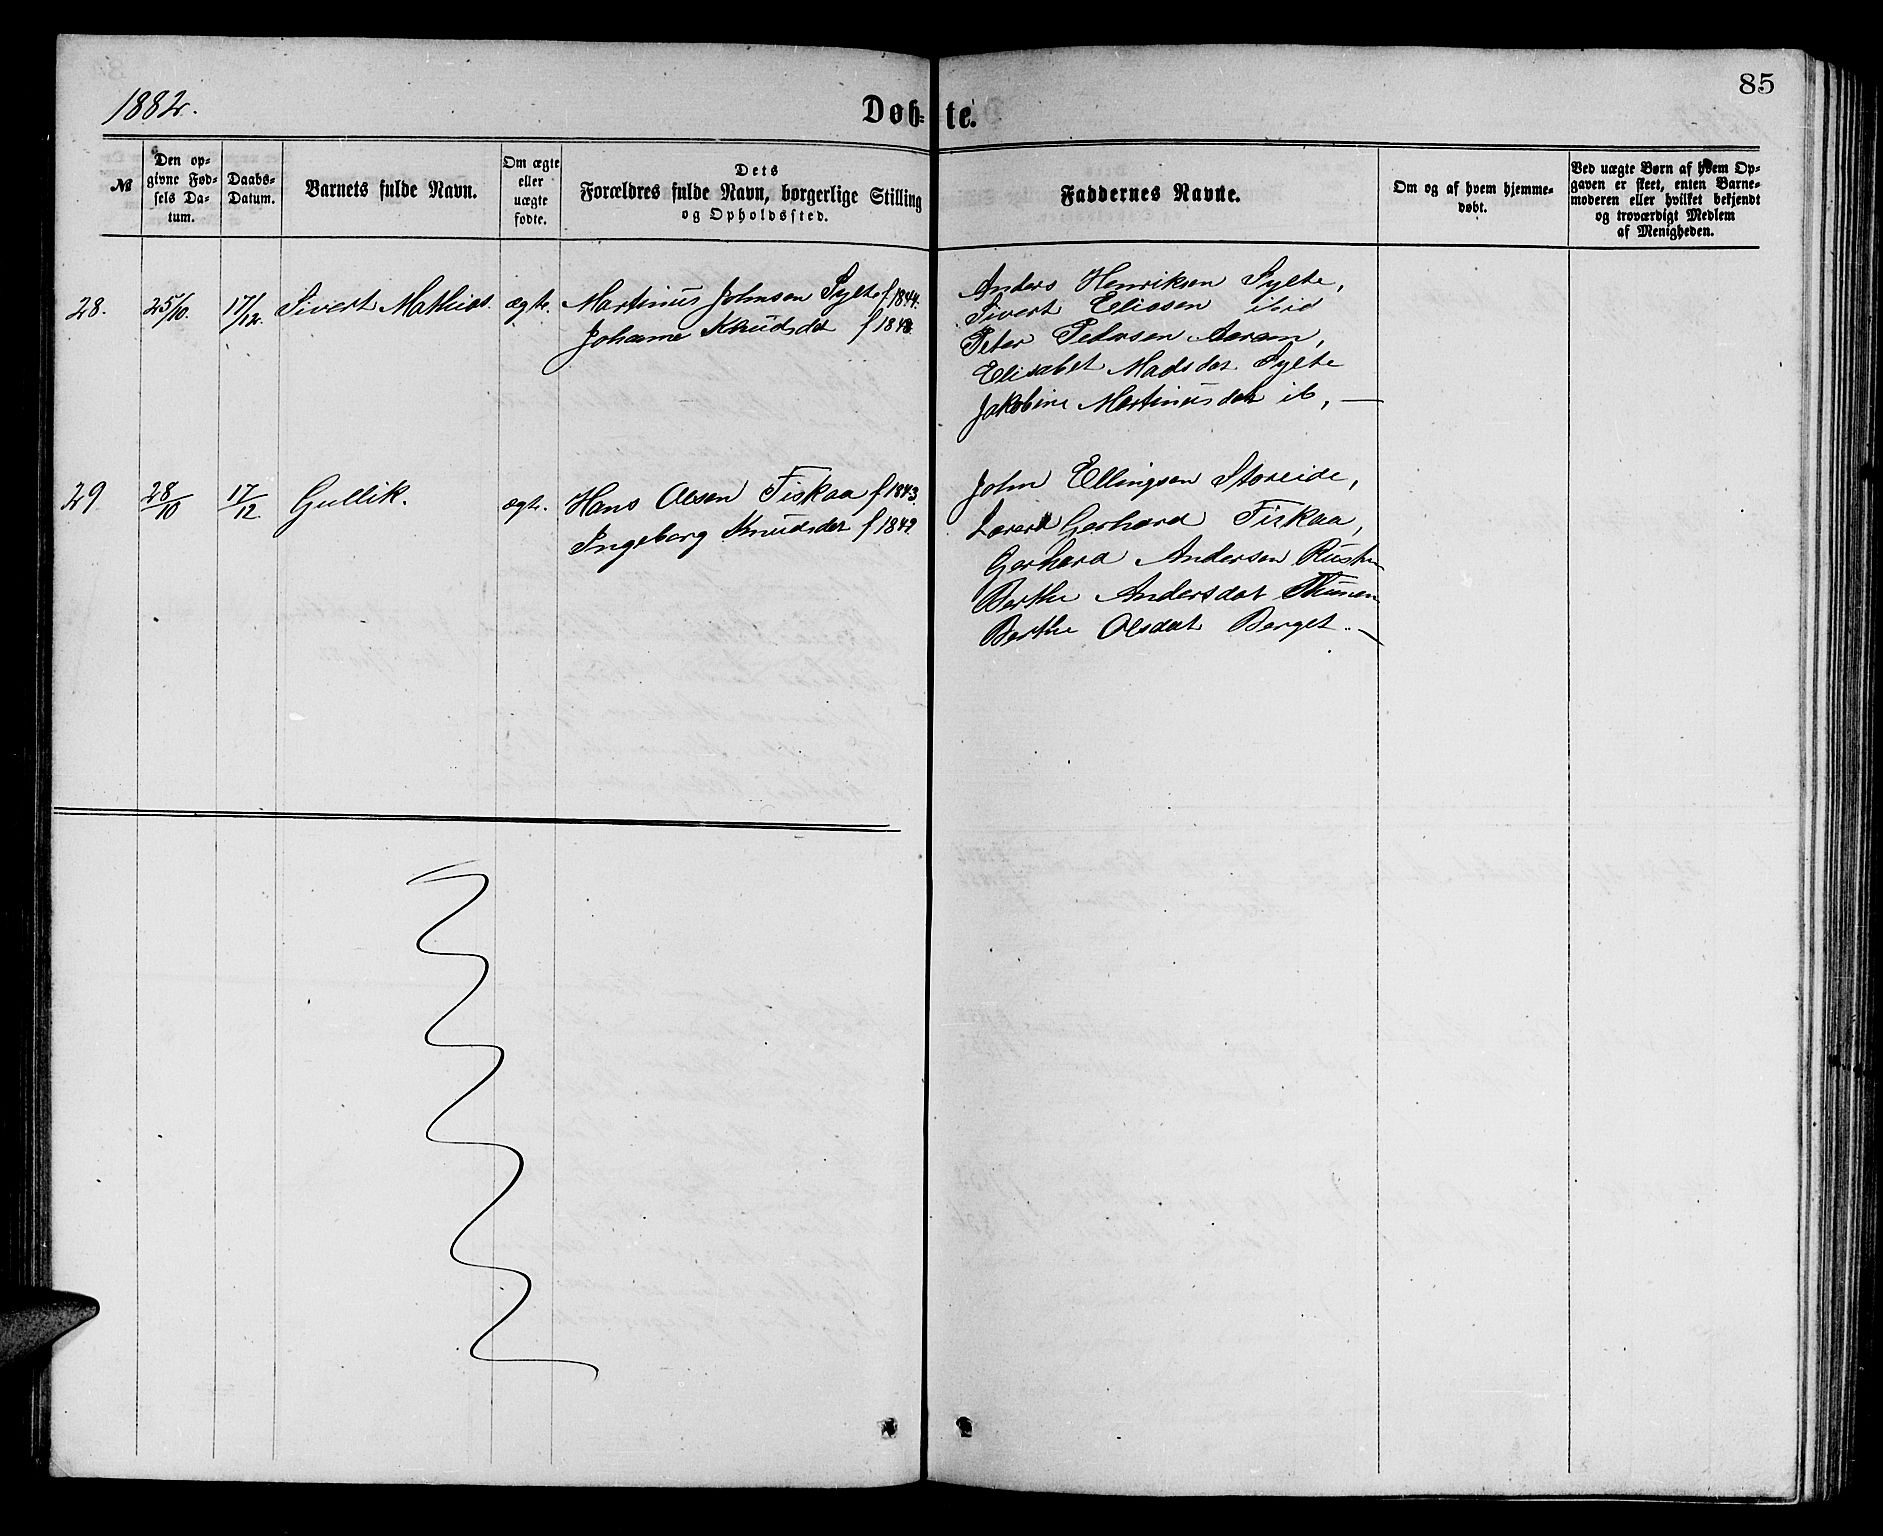 85
1882.
Døb=te.
№
Den op=
givne Fød=
sels Da=
tum.
Daabs=
Datum.
Barnets fulde Navn.
Om ægte
eller
uægte
fødte.
Dets
Forældres fulde Navn, borgerlige Stilling
og Opholdssted.
Faddernes Navne.
Om og af hvem hjemme=
døbt.
Ved uægte Børn af hvem Op=
gaven er skeet, enten Barne=
moderen eller hvilket bekjendt
og troværdigt Medlem
af Menigheden.
28. 25/10. 17/12. Sivert Mathias. ægte. Martinus Johnsen Sylte f 1844.
Johanne Knudsdat f 184
Anders Henriksen Sylte,
Sivert Eliasen ibid
Peter Pedersen Aarsen,
Elisabet Madsdat Sylte
Jakobine Martinusdat ib, —
29 28/10 17/12 Gullik. ægte. Hans Olsen Fiskaa f 1843
Ingeborg Knudsdat f 1842
John Ellingsen Storeide,
Gerhard Fiskaa,
Gerhard Andersen Rusten
Berthe Andersdat Thunem
Berthe Olsdat Berget. —